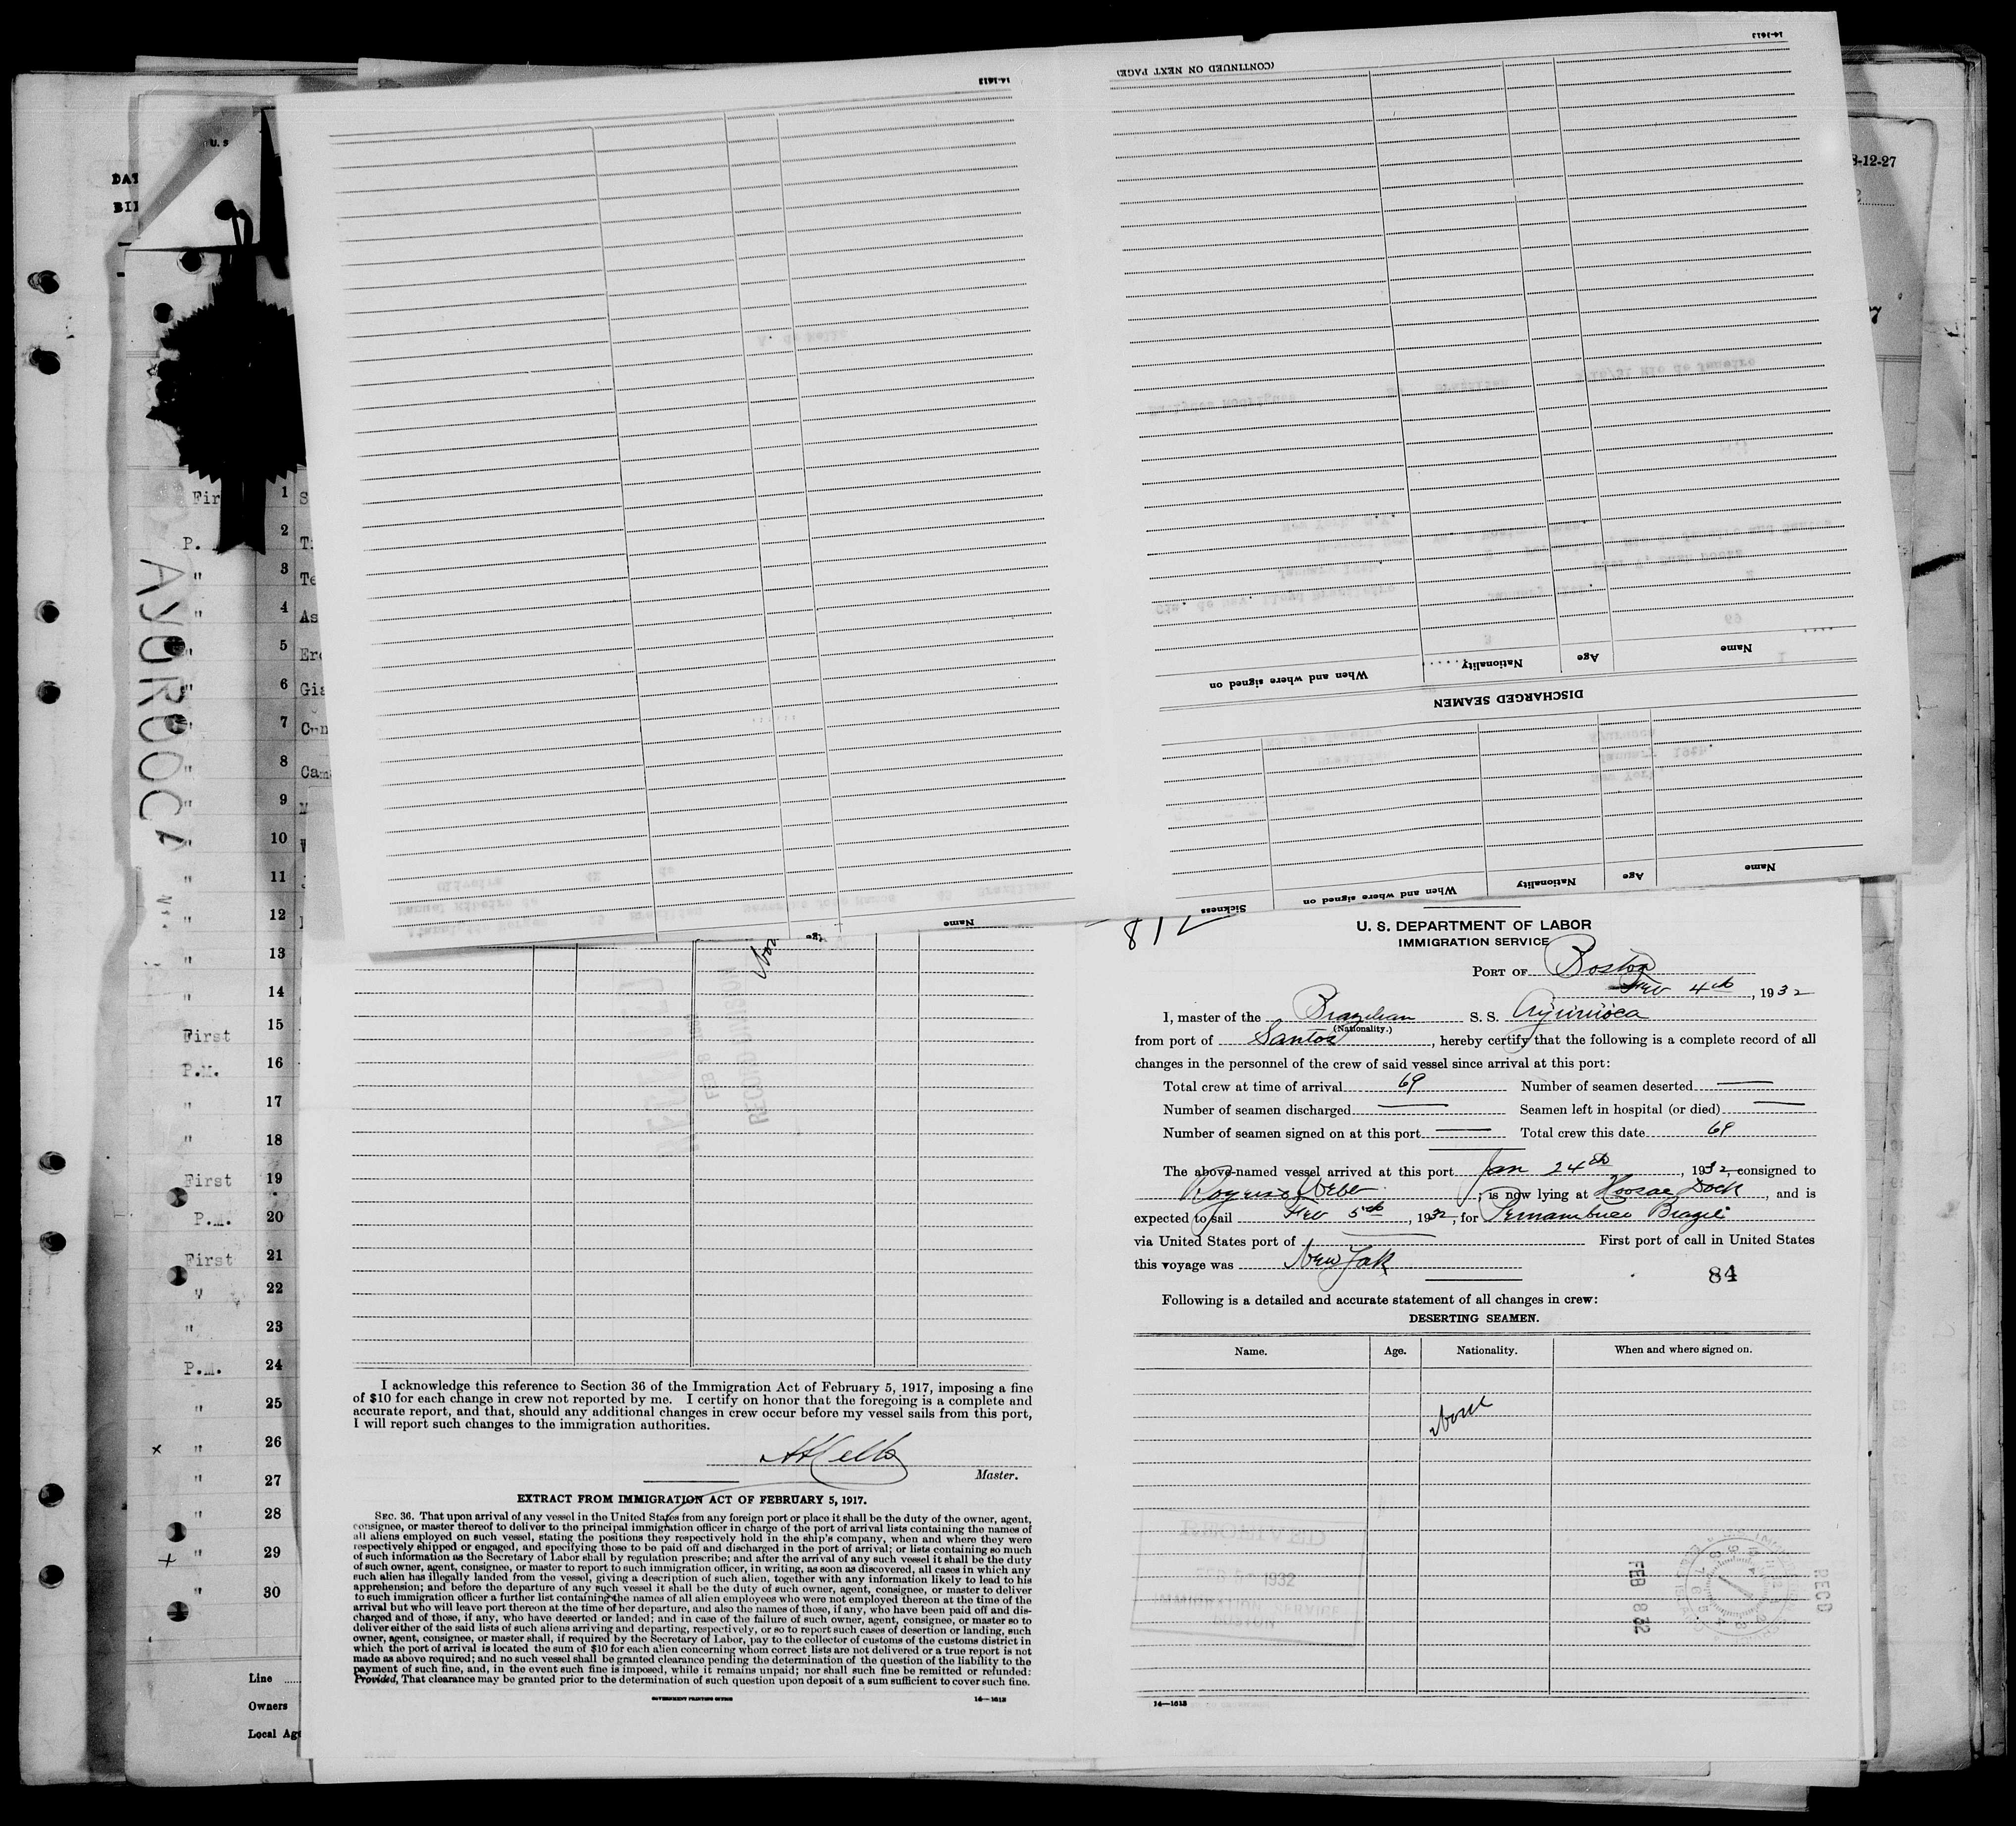 14-1613
14-1613
(CONTINUED ON NEXT PAGE)
Name
Age
Nationality
When and where signed on
DISCHARGED SEAMEN
Name
Age
Nationality
When and where signed on
Sickness
Name
Age
U. S
DAT
BII
8-12-27
7
AYUROOCA
First
P.
1 S
2
3 Te
4 As
5 Erc
6 Gia
7
8 Cam
9
10
11
12
13
14
First 15
P.M. 16
" 17
" 18
First 19
P.M. 20
First 21
" 22
" 23
P.M. 24
" 25
x " 26
" 27
" 28
+ " 29
" 30
Line
Owners
Local Age
812
U. S. DEPARTMENT OF LABOR
IMMIGRATION SERVICE
PORT OF Boston
Feb 4th, 1932
I, master of the Brazilian S. S. Ayuruoca
(Nationality.)
from port of Santos, hereby certify that the following is a complete record of all
changes in the personnel of the crew of said vessel since arrival at this port:
Total crew at time of arrival 69 Number of seamen deserted —
Number of seamen discharged — Seamen left in hospital (or died) —
Number of seamen signed on at this port — Total crew this date 69
The above-named vessel arrived at this port Jan 24th, 1932, consigned to
Rogers & Webb, is now lying at Hoosac Dock, and is
expected to sail Feb 5th, 1932, for Pernambuco Brazil
via United States port of — First port of call in United States
this voyage was New York
84
Following is a detailed and accurate statement of all changes in crew:
DESERTING SEAMEN.
Name. Age. Nationality. When and where signed on.
None
RECEIVED
1932
IMMIGRATION SERVICE
BOSTON
FEB 8 32
RECD
I acknowledge this reference to Section 36 of the Immigration Act of February 5, 1917, imposing a fine
of $10 for each change in crew not reported by me. I certify on honor that the foregoing is a complete and
accurate report, and that, should any additional changes in crew occur before my vessel sails from this port,
I will report such changes to the immigration authorities.
Master.
EXTRACT FROM IMMIGRATION ACT OF FEBRUARY 5, 1917.
SEC. 36. That upon arrival of any vessel in the United States from any foreign port or place it shall be the duty of the owner, agent,
consignee, or master thereof to deliver to the principal immigration officer in charge of the port of arrival lists containing the names of
all aliens employed on such vessel, stating the positions they respectively hold in the ship's company, when and where they were
respectively shipped or engaged, and specifying those to be paid off and discharged in the port of arrival; or lists containing so much
of such information as the Secretary of Labor shall by regulation prescribe; and after the arrival of any such vessel it shall be the duty
of such owner, agent, consignee, or master to report to such immigration officer, in writing, as soon as discovered, all cases in which any
such alien has illegally landed from the vessel, giving a description of such alien, together with any information likely to lead to his
apprehension; and before the departure of any such vessel it shall be the duty of such owner, agent, consignee, or master to deliver
to such immigration officer a further list containing the names of all alien employees who were not employed thereon at the time of the
arrival but who will leave port thereon at the time of her departure, and also the names of those, if any, who have been paid off and dis-
charged and of those, if any, who have deserted or landed; and in case of the failure of such owner, agent, consignee, or master so to
deliver either of the said lists of such aliens arriving and departing, respectively, or so to report such cases of desertion or landing, such
owner, agent, consignee, or master shall, if required by the Secretary of Labor, pay to the collector of customs of the customs district in
which the port of arrival is located the sum of $10 for each alien concerning whom correct lists are not delivered or a true report is not
made as above required; and no such vessel shall be granted clearance pending the determination of the question of the liability to the
payment of such fine, and, in the event such fine is imposed, while it remains unpaid; nor shall such fine be remitted or refunded:
Provided, That clearance may be granted prior to the determination of such question upon deposit of a sum sufficient to cover such fine.
GOVERNMENT PRINTING OFFICE 14—1613
14—1613